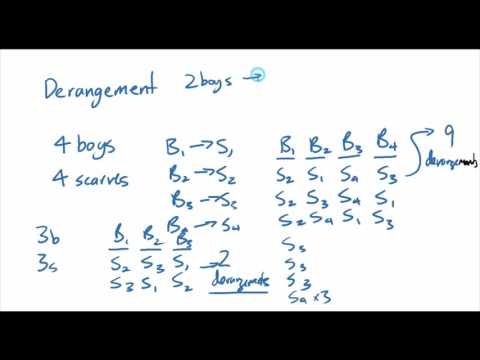 Derangement 2 boys →
4 boys
4 scarves
B₁ → S₁
B₂ → S₂
B₃ → S₃
B₄ → S₄
B₁ B₂ B₃ B₄
S₂ S₁ S₄ S₃
S₂ S₃ S₄ S₁
S₂ S₄ S₁ S₃
S₃
S₃
S₃
S₄ × 3
→ 9
derangements
3b
3s
B₁ B₂ B₃
S₂ S₃ S₁
S₃ S₁ S₂
→ 2
derangements